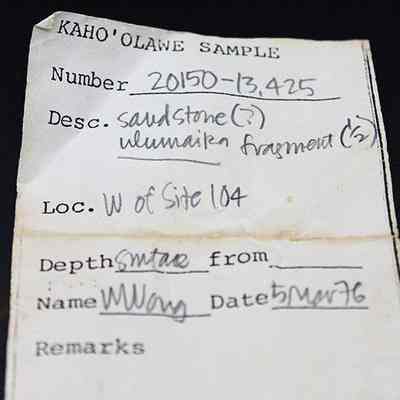 KAHO'OLAWE SAMPLE
Number 20150-13,425
Desc. sandstone(?)
ulumaika fragment (1/2)
Loc. W of Site 104
Depth surface from
Name Date 5 Mar 76
Remarks